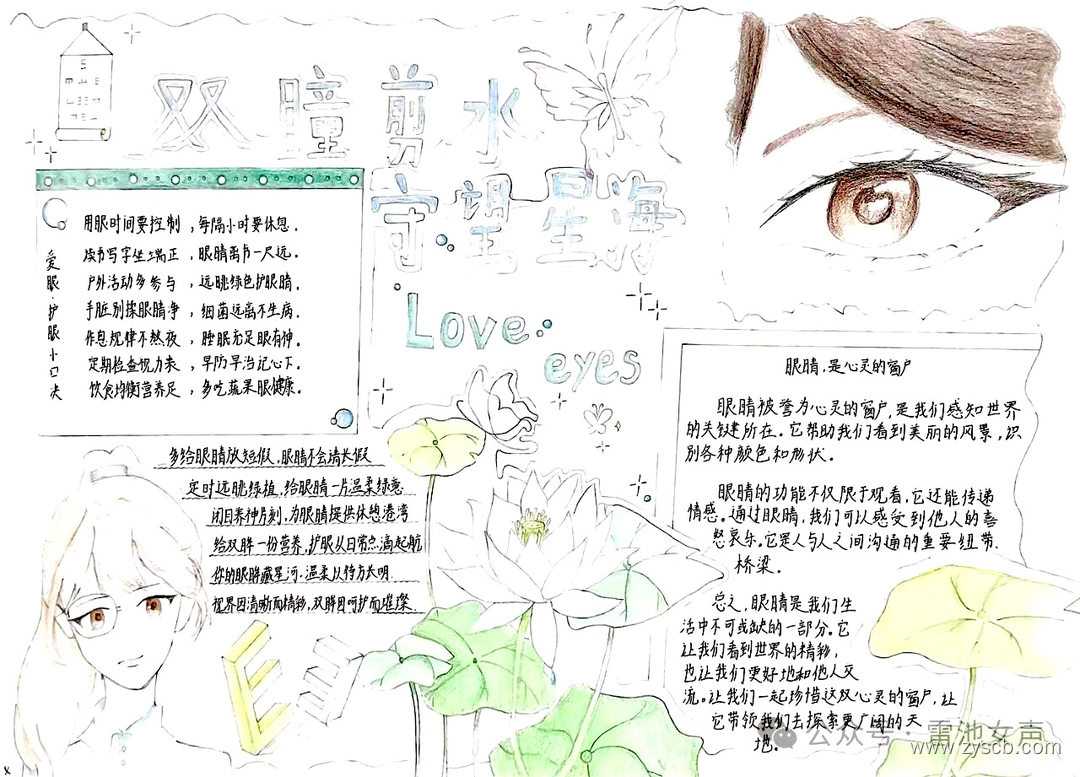 双瞳剪水
守望星海
Love
eyes
爱眼·护眼小口决
用眼时间要控制，每隔小时要休息。
读书写字坐端正，眼睛离书一尺远。
户外活动多参与，远眺绿色护眼睛。
手脏别揉眼睛净，细菌远离不生病。
作息规律不熬夜，睡眠充足眼有神。
定期检查视力表，早防早治记心下。
饮食均衡营养足，多吃蔬果眼健康。
多给眼睛放短假，眼睛不会请长假
定时远眺绿植，给眼睛一片温柔绿意
闭目养神片刻，为眼睛提供休憩港湾
给双眸一份营养，护眼从日常点滴起航
你的眼眸藏星河·温柔以待方长明
视界因清晰而精彩，双眸因呵护而璀璨
E
眼睛，是心灵的窗户
眼睛被誉为心灵的窗户，是我们感知世界
的关键所在。它帮助我们看到美丽的风景，识
别各种颜色和形状。
眼睛的功能不仅限于观看，它还能传递
情感。通过眼睛，我们可以感受到他人的喜
怒哀乐，它是人与人之间沟通的重要纽带、
桥梁。
总之，眼睛是我们生
活中不可或缺的一部分。它
让我们看到世界的精彩，
也让我们更好地和他人交
流。让我们一起珍惜这双心灵的窗户，让
它带领我们去探索更广阔的天
地。
公众号·雷池女声
www.zyscb.com